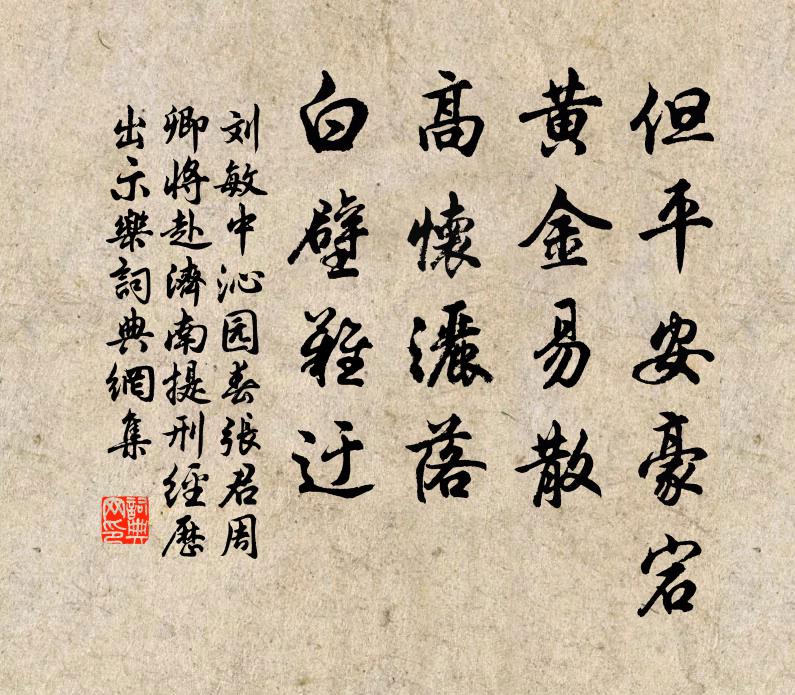 但平安豪宕
黄金易散
高懷灑落
白壁難迂
刘敏中沁园春張君周
卿將赴濟南提刑經歷
出示樂詞典網集
詞典
网印